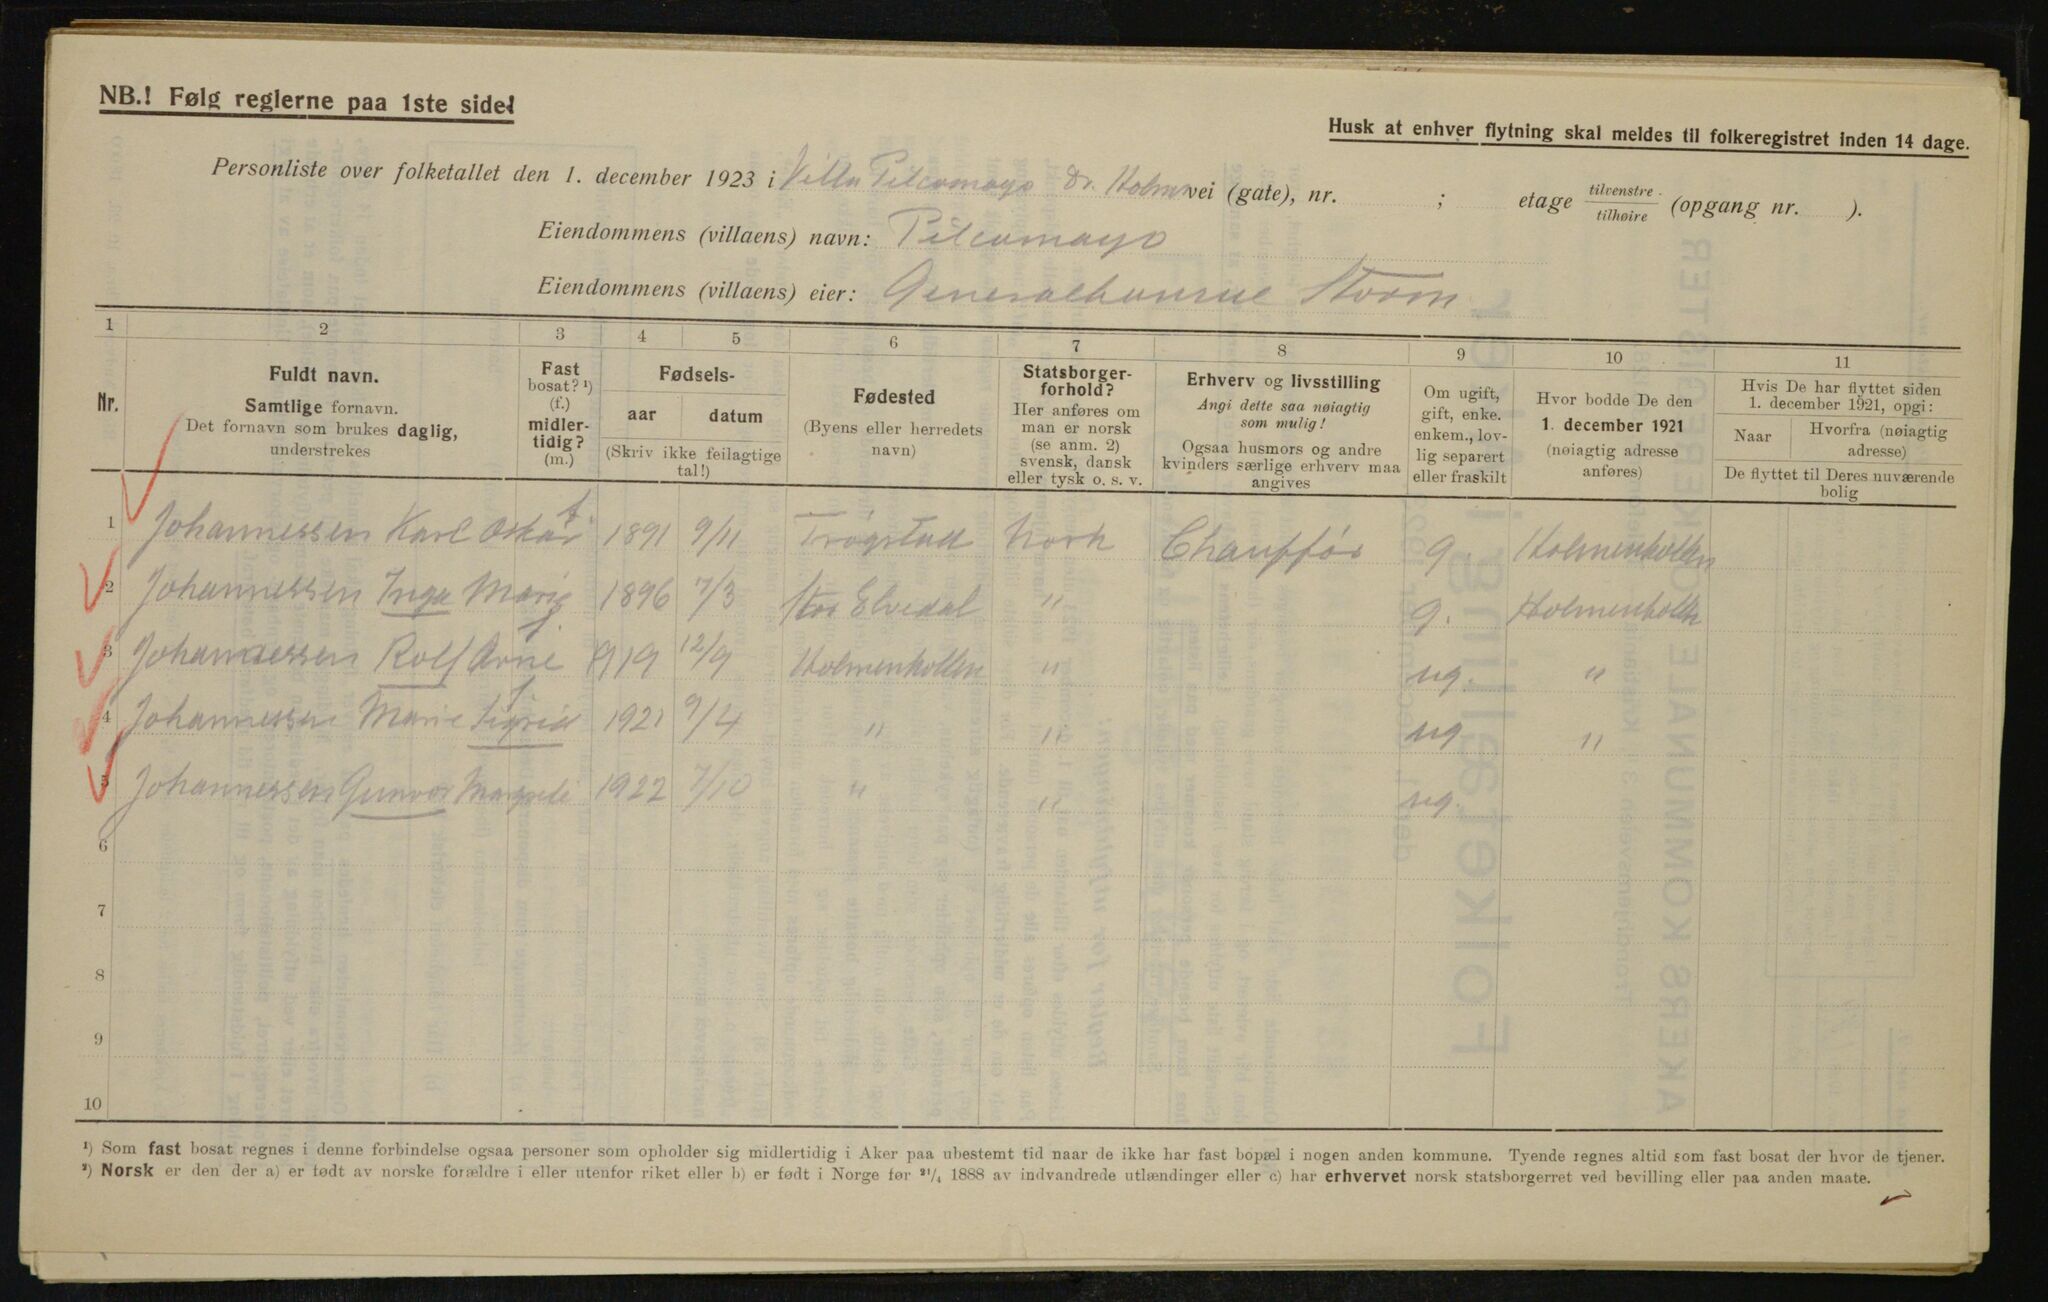 NB.! Følg reglerne paa 1ste side!
Husk at enhver flytning skal meldes til folkeregistret inden 14 dage.
Personliste over folketallet den 1. december 1923 i Villa Pilcomayo Dr. Holms vei (gate), nr. ; etage tilvenstre tilhøire (opgang nr. ).
Eiendommens (villaens) navn: Pilcomayo
Eiendommens (villaens) eier: Generalkonsul Storm
1 2 3 4 5 6 7 8 9 10 11
Nr.
Fuldt navn.
Samtlige fornavn.
Det fornavn som brukes daglig,
understrekes
Fast
bosat? ¹)
(f.)
midler-
tidig?
(m.)
Fødsels-
aar datum
(Skriv ikke feilagtige
tal!)
Fødested
(Byens eller herredets
navn)
Statsborger-
forhold?
Her anføres om
man er norsk
(se anm. 2)
svensk, dansk
eller tysk o. s. v.
Erhverv og livsstilling
Angi dette saa nøiagtig
som mulig!
Ogsaa husmors og andre
kvinders særlige erhverv maa
angives
Om ugift,
gift, enke.
enkem., lov-
lig separert
eller fraskilt
Hvor bodde De den
1. december 1921
(nøiagtig adresse
anføres)
Hvis De har flyttet siden
1. december 1921, opgi:
Naar Hvorfra (nøiagtig
adresse)
De flyttet til Deres nuværende
bolig
1 Johannessen Karl Oskar f. 1891 9/11 Trøgstad Norsk Chauffør g. Holmenkollen
2 Johannessen Inga Marie 1896 7/3 Stor Elvedal " g. Holmenkollen
3 Johannessen Rolf Arne f. 1919 12/9 Holmenkollen " ug. "
4 Johannessen Marie Sigrid f. 1921 9/4 " " ug. "
5 Johannessen Gunvor Margrete 1922 7/10 " " ug.
6
7
8
9
10
¹) Som fast bosat regnes i denne forbindelse ogsaa personer som opholder sig midlertidig i Aker paa ubestemt tid naar de ikke har fast bopæl i nogen anden kommune. Tyende regnes altid som fast bosat der hvor de tjener.
²) Norsk er den der a) er født av norske forældre i eller utenfor riket eller b) er født i Norge før ²¹/₄ 1888 av indvandrede utlændinger eller c) har erhvervet norsk statsborgerret ved bevilling eller paa anden maate.